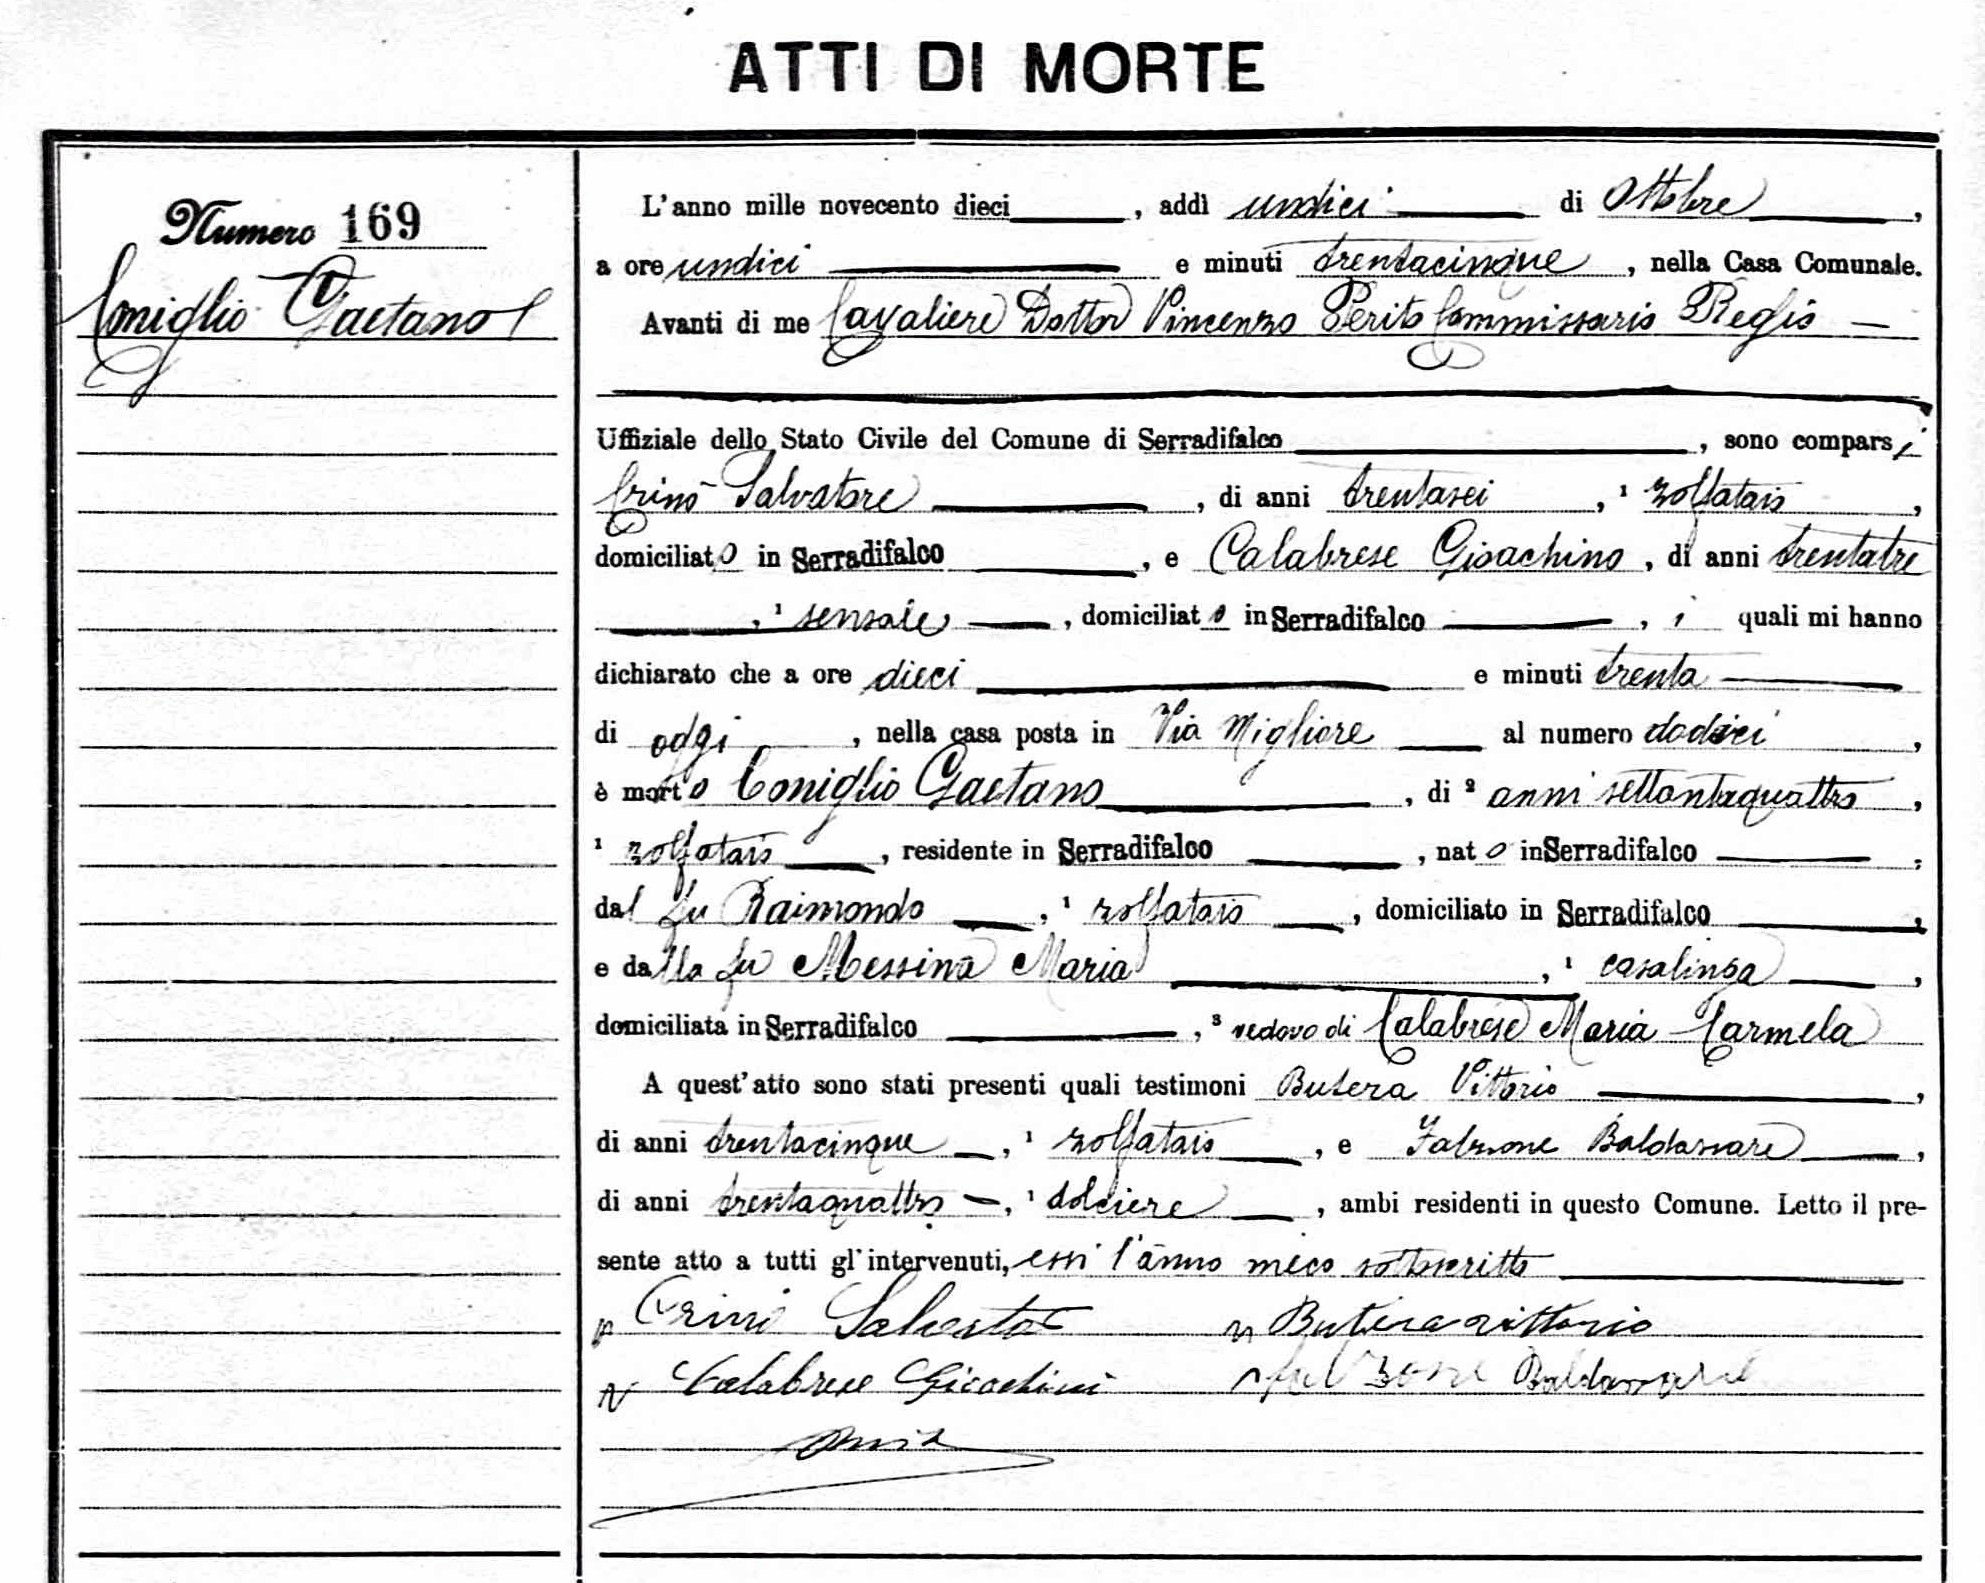 ATTI DI MORTE
Numero 169
Coniglio Gaetano
L'anno mille novecento dieci, addì undici di Ottobre,
a ore undici e minuti trentacinque, nella Casa Comunale.
Avanti di me Cavaliere Dottor Vincenzo Perito Commissario Regio
Uffiziale dello Stato Civile del Comune di Serradifalco, sono comparsi
Crinò Salvatore, di anni trentasei, ¹ zolfataio,
domiciliato in Serradifalco, e Calabrese Gioachino, di anni trentatre
, ¹ sensale, domiciliato in Serradifalco, i quali mi hanno
dichiarato che a ore dieci e minuti trenta
di oggi, nella casa posta in Via Migliore al numero dodici,
è morto Coniglio Gaetano, di ² anni settantaquattro,
¹ zolfataio, residente in Serradifalco, nato in Serradifalco,
dal fu Raimondo, ¹ zolfataio, domiciliato in Serradifalco,
e dalla fu Messina Maria, ¹ casalinga,
domiciliata in Serradifalco, ³ vedovo di Calabrese Maria Carmela
A quest'atto sono stati presenti quali testimoni Butera Vittorio,
di anni trentacinque, ¹ zolfataio, e Falzone Baldassare,
di anni trentaquattro, ¹ dolciere, ambi residenti in questo Comune. Letto il pre-
sente atto a tutti gl'intervenuti, essi l'ànno meco sottoscritto
Crinò Salvatore
Butera Vittorio
Calabrese Gioachino
Falzone Baldassare